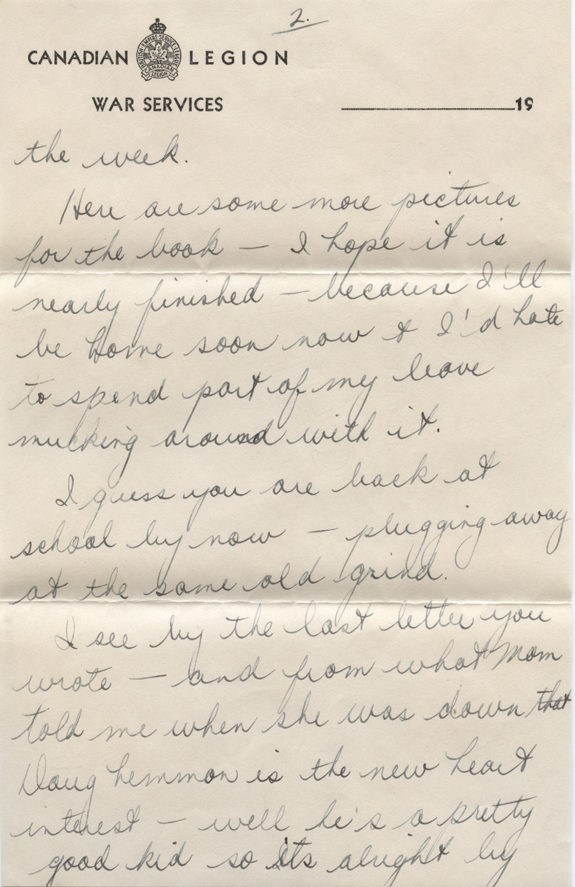 2.
CANADIAN LEGION
WAR SERVICES
19
the week.
Here are some more pictures
for the book — I hope it is
nearly finished — because I'll
be home soon now & I'd hate
to spend part of my leave
mucking around with it.
I guess you are back at
school by now — plugging away
at the same old grind.
I see by the last letter you
wrote — and from what Mom
told me when she was down that
Doug Lemmon is the new heart
interest — well he's a pretty
good kid so its alright by